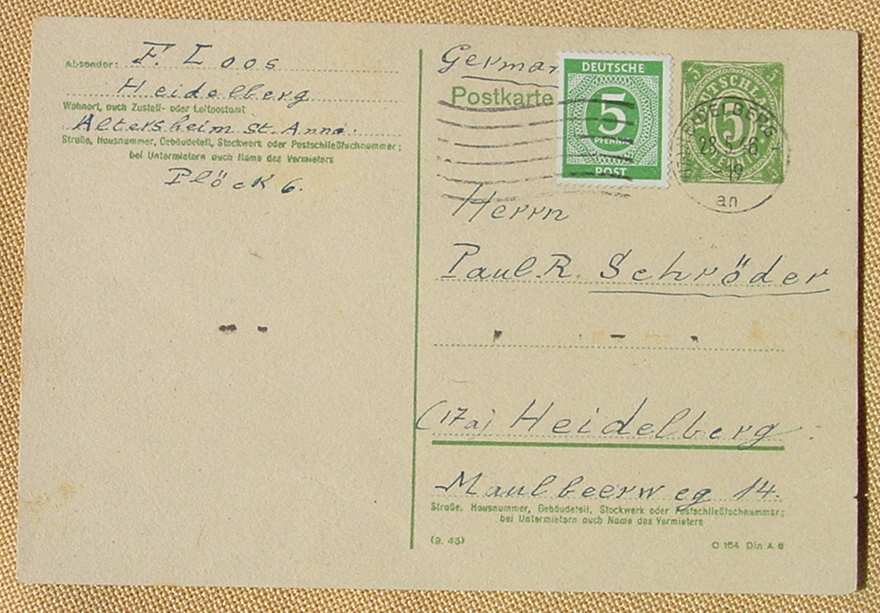 Absender: F. Loos
Heidelberg
Wohnort, auch Zustell- oder Leitpostamt
Altersheim St. Anna.
Straße, Hausnummer, Gebäudeteil, Stockwerk oder Postschließfachnummer;
bei Untermietern auch Name des Vermieters
Plöck 6.
German
Postkarte
DEUTSCHE
5
PFENNIG
POST
5 5
DEUTSCHE
5
PFENNIG
HEIDELBERG
-19
an
Herrn
Paul R. Schröder
(17a) Heidelberg
Maulbeerweg 14.
Straße, Hausnummer, Gebäudeteil, Stockwerk oder Postschließfachnummer;
bei Untermietern auch Name des Vermieters
(9. 45)
C 154 Din A 6